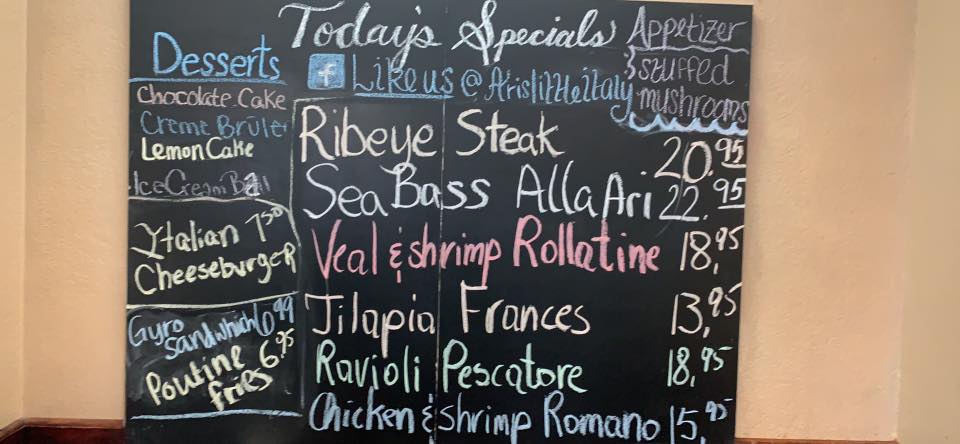 Today's Specials
f Like us @ Arislittleitaly
Appetizer
& stuffed
mushrooms
Desserts
Chocolate Cake
Creme Brûle
Lemon Cake
Ice Cream Ball
Italian 7.50
Cheeseburger
Gyro
sandwich 10.99
Poutine
fries 6.95
Ribeye Steak 20.95
Sea Bass Alla Ari 22.95
Veal & shrimp Rollatine 18,95
Tilapia Frances 13,95
Ravioli Pescatore 18,95
Chicken & shrimp Romano 15,95